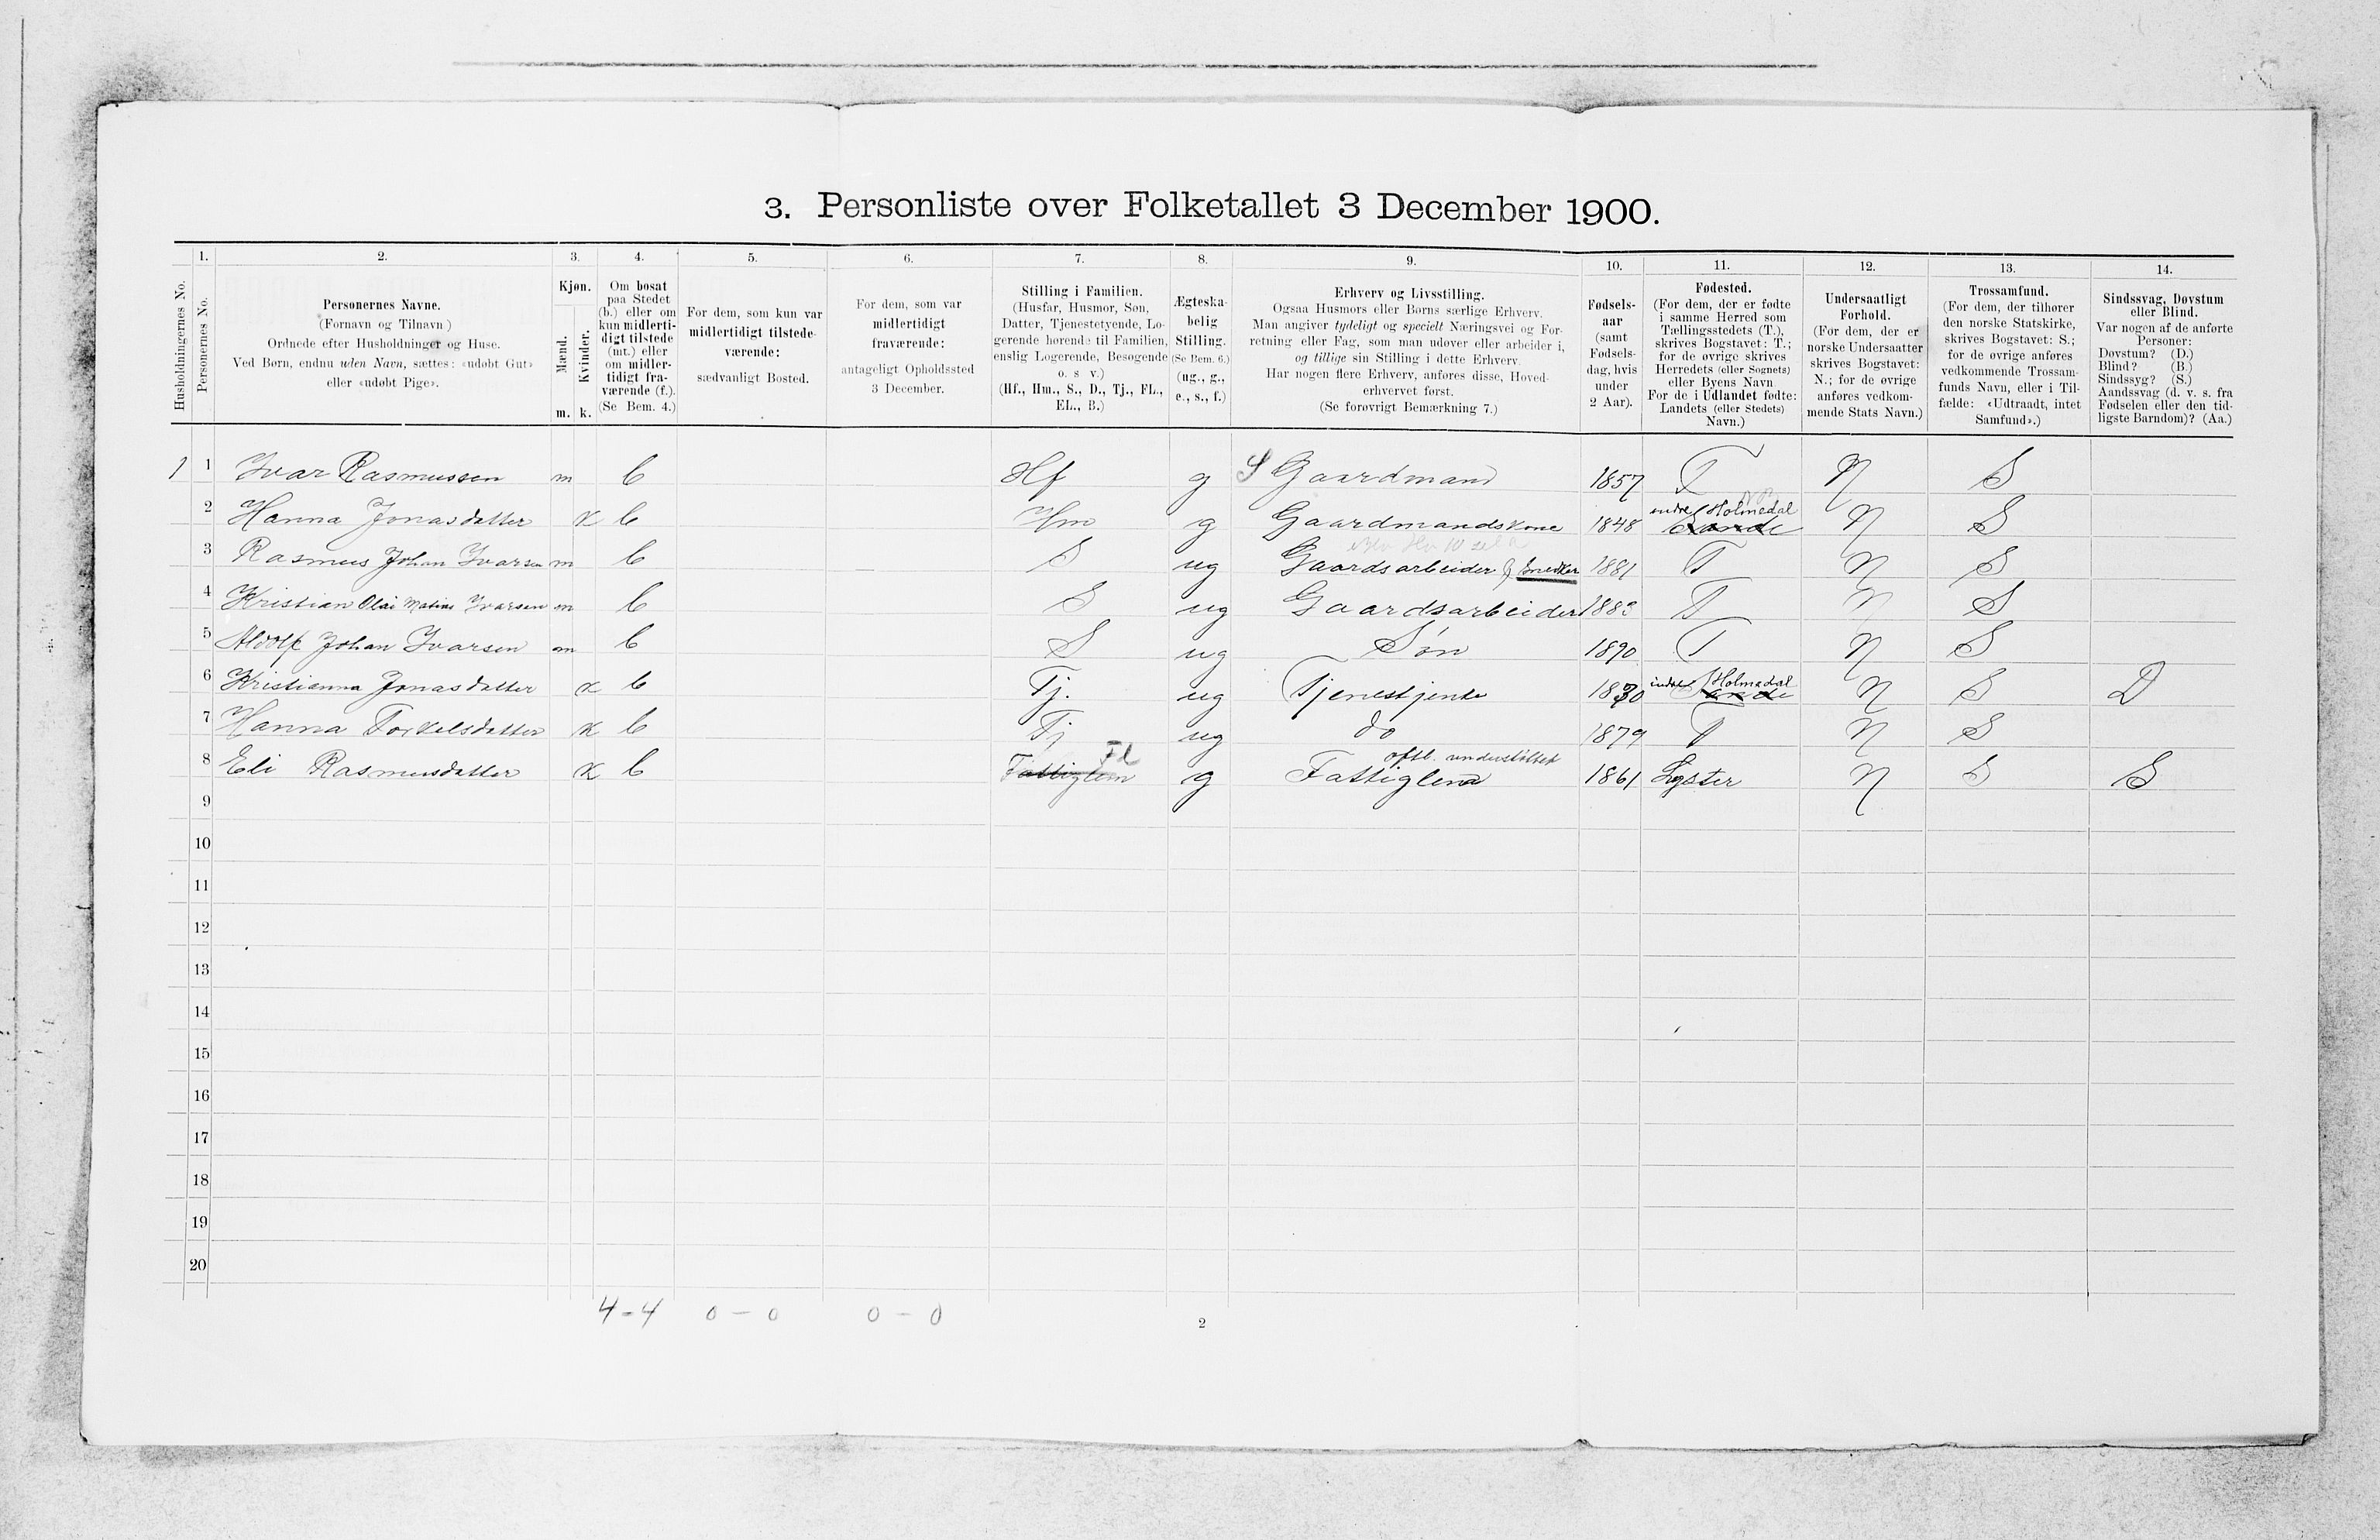 3. Personliste over Folketallet 3 December 1900.
1. 2. 3. 4. 5. 6. 7. 8. 9. 10. 11. 12. 13. 14.
Husholdningernes No.
Personernes No.
Personernes Navne.
(Fornavn og Tilnavn)
Ordnede efter Husholdninger og Huse.
Ved Børn, endnu uden Navn, sættes: «udøbt Gut»
eller «udøbt Pige».
Kjøn.
Mænd.
Kvinder.
m. k.
Om bosat
paa Stedet
(b.) eller om
kun midlerti-
digt tilstede
(mt.) eller
om midler-
tidigt fra-
værende (f.).
(Se Bem. 4.)
For dem, som kun var
midlertidigt tilstede-
værende:
sædvanligt Bosted.
For dem, som var
midlertidigt
fraværende:
antageligt Opholdssted
3 December.
Stilling i Familien.
(Husfar, Husmor, Søn,
Datter, Tjenestetyende, Lo-
gerende hørende til Familien,
enslig Logerende, Besøgende
o. s. v.)
(Hf., Hm., S., D., Tj., FL.,
EL., B.)
Ægteska-
belig
Stilling.
(Se Bem. 6.)
(ug., g.,
e., s., f.)
Erhverv og Livsstilling.
Ogsaa Husmors eller Børns særlige Erhverv.
Man angiver tydeligt og specielt Næringsvei og For-
retning eller Fag, som man udøver eller arbeider i,
og tillige sin Stilling i dette Erhverv.
Har nogen flere Erhverv, anføres disse, Hoved-
erhvervet først.
(Se forøvrigt Bemærkning 7.)
Fødsels-
aar
(samt
Fødsels-
dag, hvis
under
2 Aar).
Fødested.
(For dem, der er fødte
i samme Herred som
Tællingsstedets (T.),
skrives Bogstavet: T.;
for de øvrige skrives
Herredets (eller Sognets)
eller Byens Navn
For de i Udlandet fødte:
Landets (eller Stedets)
Navn.)
Undersaatligt
Forhold.
(For dem, der er
norske Undersaatter
skrives Bogstavet:
N.; for de øvrige
anføres vedkom-
mende Stats Navn.)
Trossamfund.
(For dem, der tilhører
den norske Statskirke,
skrives Bogstavet: S.;
for de øvrige anføres
vedkommende Trossam-
funds Navn, eller i Til-
fælde: «Udtraadt, intet
Samfund».)
Sindssvag, Døvstum
eller Blind.
Var nogen af de anførte
Personer:
Døvstum? (D.)
Blind? (B.)
Sindssyg? (S.)
Aandssvag (d. v. s. fra
Fødselen eller den tid-
ligste Barndom)? (Aa.)
1 1 Ivar Rasmussen m b Hf g S Gaardmand 1857 T N S
indre Holmedal
2 Hanna Jonasdatter k b Hm g Gaardmandskone 1848 Sande N S
3 Rasmus Johan Ivarsen m b S ug Gaardsarbeider & Snedker 1881 T N S
4 Kristian Olai Matias Ivarsen m b S ug Gaardsarbeider 1883 T N S
5 Aldolf Johan Ivarsen m b S ug Søn 1890 T N S
indre Holmedal
6 Kristianna Jonasdatter k b Tj. ug Tjenestjente 1830 Sande N S D
7 Hanna Torkelsdatter k b Tj ug do 1879 T N S
Fl offtl. understøttet
8 Eli Rasmusdatter k b Fattiglem g Fattiglem 1861 Lyster N S S
9
10
11
12
13
14
15
16
17
18
19
20
4 - 4 0 - 0 0 - 0
2